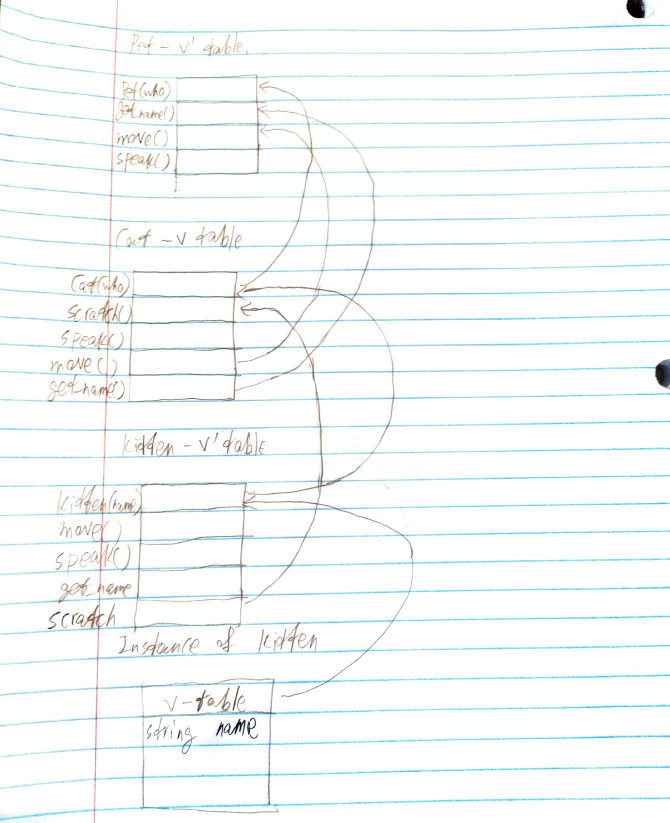 Pet - v' table.
Pet(who)
get_name()
move()
speak()
Cat - v table
Cat(who)
scratch()
speak()
move()
get_name()
kitten - v' table
kitten(name)
move()
speak()
get_name
scratch
Instance of kitten
v-table
string name